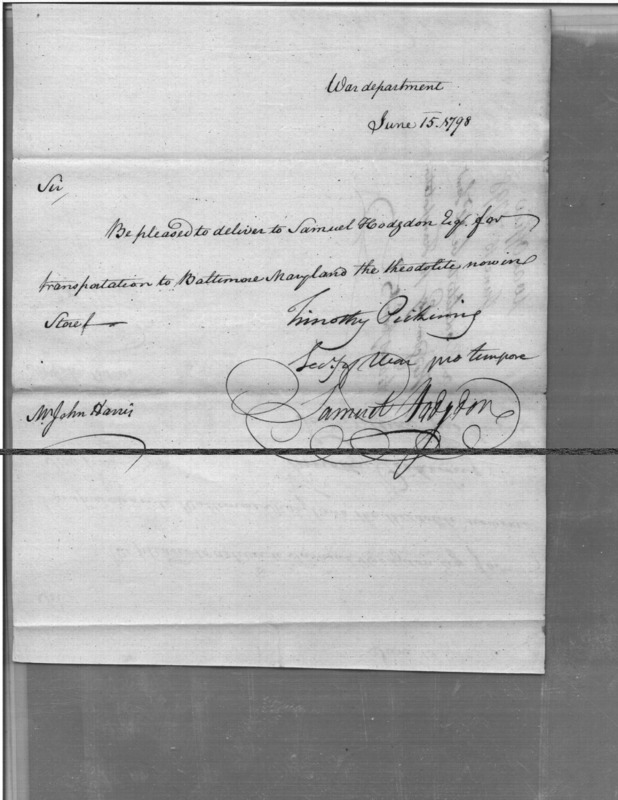 War department
June 15. 1798
Sir
Be pleased to deliver to Samuel Hodgdon Esq. for
transportation to Baltimore Maryland the theodolite now in
Store
Timothy Pickering
Secy of War pro tempore
Mr John Harris
Samuel Hodgdon